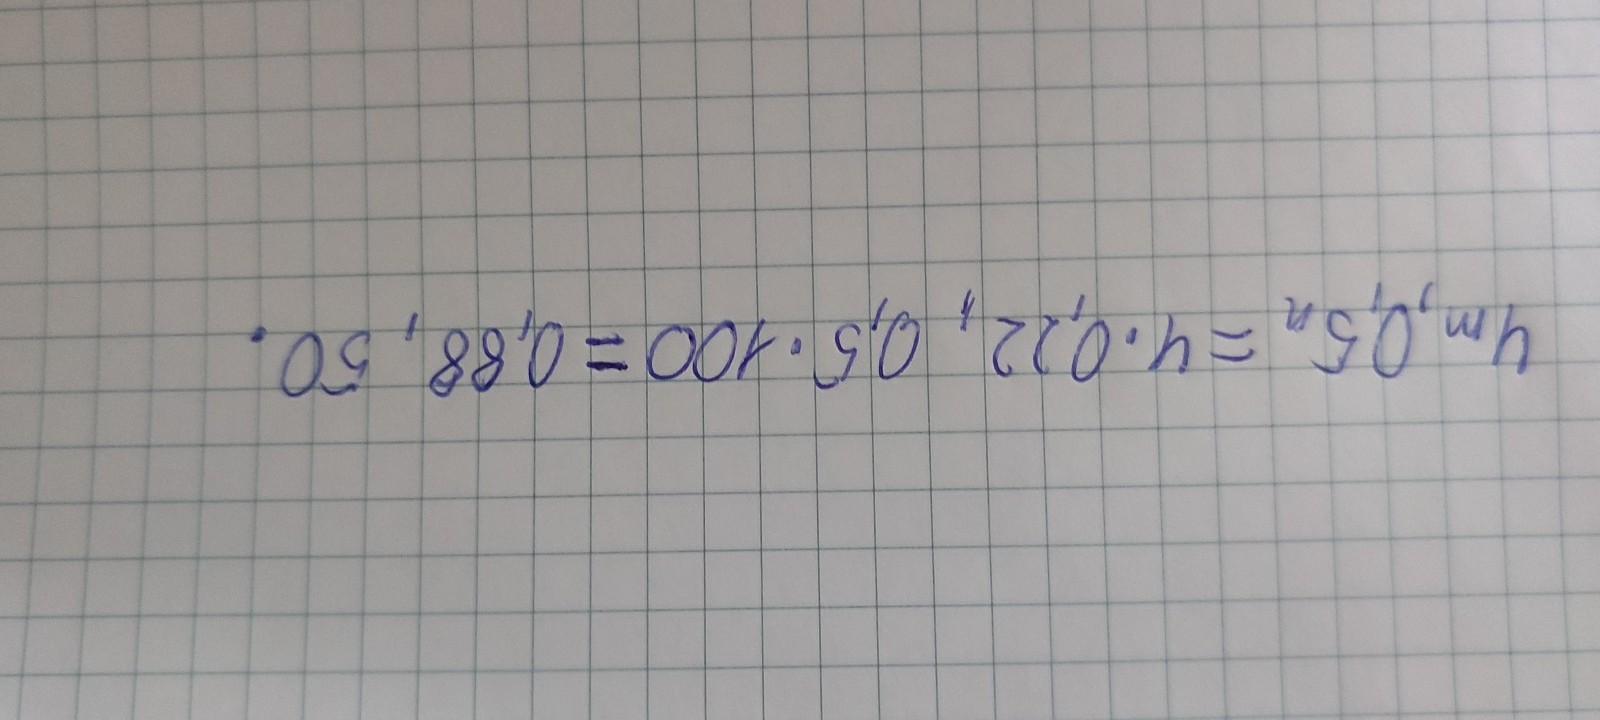 4m, 0,5n = 4·0,22, 0,5·100 = 0,88, 50.